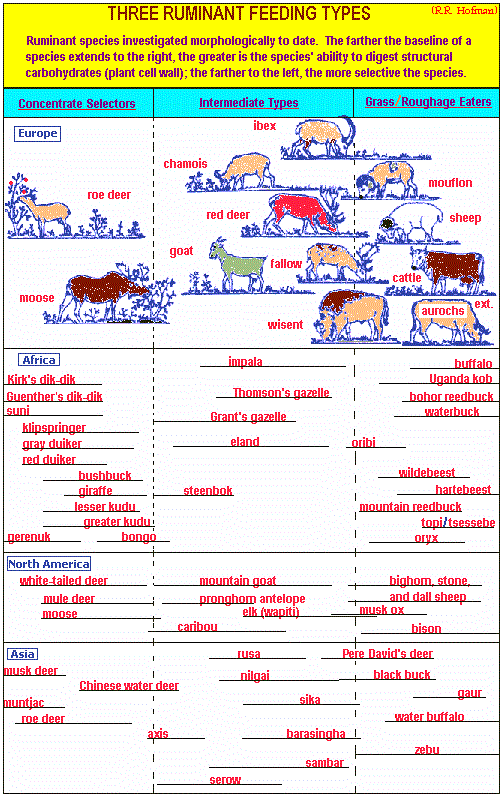 THREE RUMINANT FEEDING TYPES
(R.R. Hofman)
Ruminant species investigated morphologically to date. The farther the baseline of a
species extends to the right, the greater is the species' ability to digest structural
carbohydrates (plant cell wall); the farther to the left, the more selective the species.
Concentrate Selectors
Intermediate Types
Grass/Roughage Eaters
Europe
ibex
chamois
roe deer
mouflon
red deer
sheep
goat
fallow
cattle
moose
ext.
aurochs
wisent
Africa
impala
buffalo
Kirk's dik-dik
Uganda kob
Guenther's dik-dik
Thomson's gazelle
bohor reedbuck
suni
Grant's gazelle
waterbuck
klipspringer
gray duiker
eland
oribi
red duiker
bushbuck
wildebeest
giraffe
steenbok
hartebeest
lesser kudu
mountain reedbuck
greater kudu
topi/tsessebe
gerenuk
bongo
oryx
North America
white-tailed deer
mountain goat
bighorn, stone,
mule deer
pronghorn antelope
and dall sheep
moose
elk (wapiti)
musk ox
caribou
bison
Asia
rusa
Pere David's deer
musk deer
nilgai
black buck
Chinese water deer
gaur
muntjac
sika
roe deer
water buffalo
axis
barasingha
zebu
sambar
serow